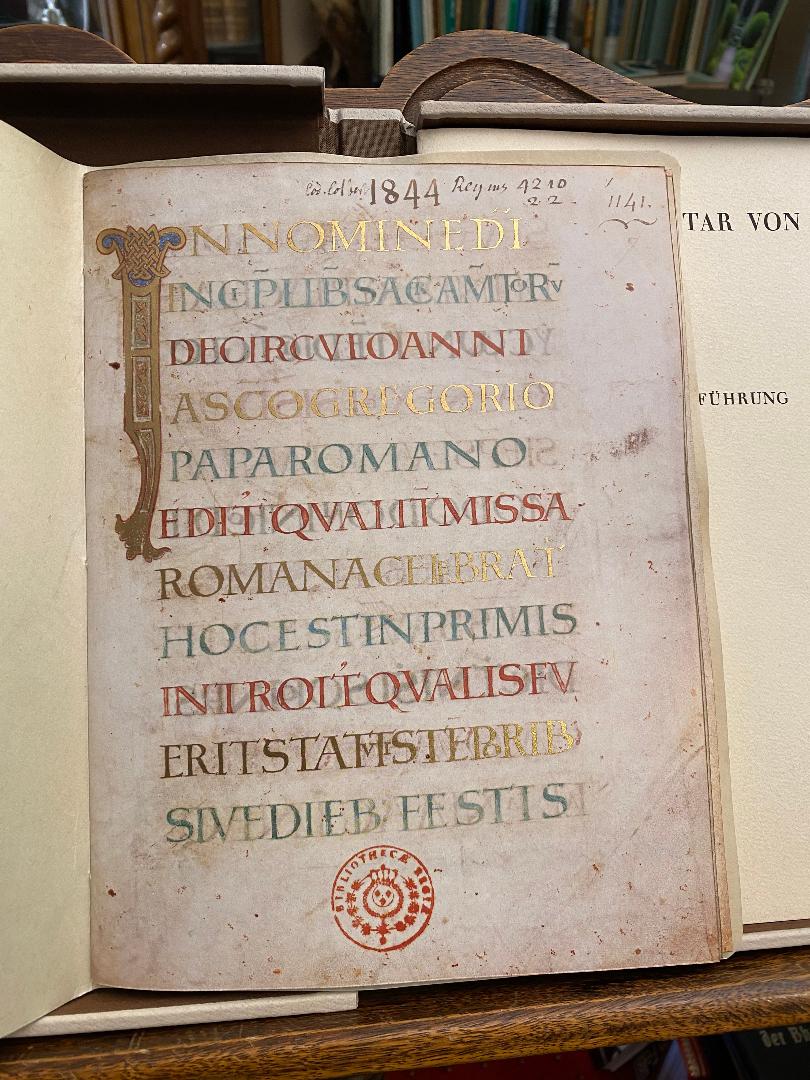 Cod. Colber. 1844 Regius 4210
2 2
1141.
IN NOMINE DNI
INCIPIT LIB SACAMTORV
DE CIRCVLO ANNI
A SCO GREGORIO
PAPA ROMANO
EDIT QVALIT MISSA
ROMANA CELEBRAT
HOC EST IN PRIMIS
INTROIT QVALIS FV
ERIT STATVTIS TEPORIB
SIVE DIEB FESTIS
BIBLIOTHECÆ REGIÆ
TAR VON
FÜHRUNG